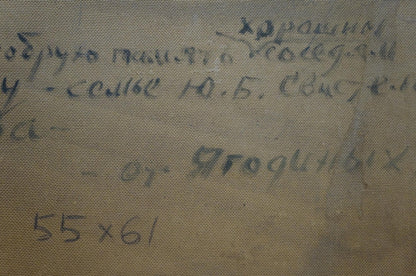 хорошим
обрую память соседям
у - семье Ю. Б. Свисте
ва -
- от Ягодиных
55 х 61